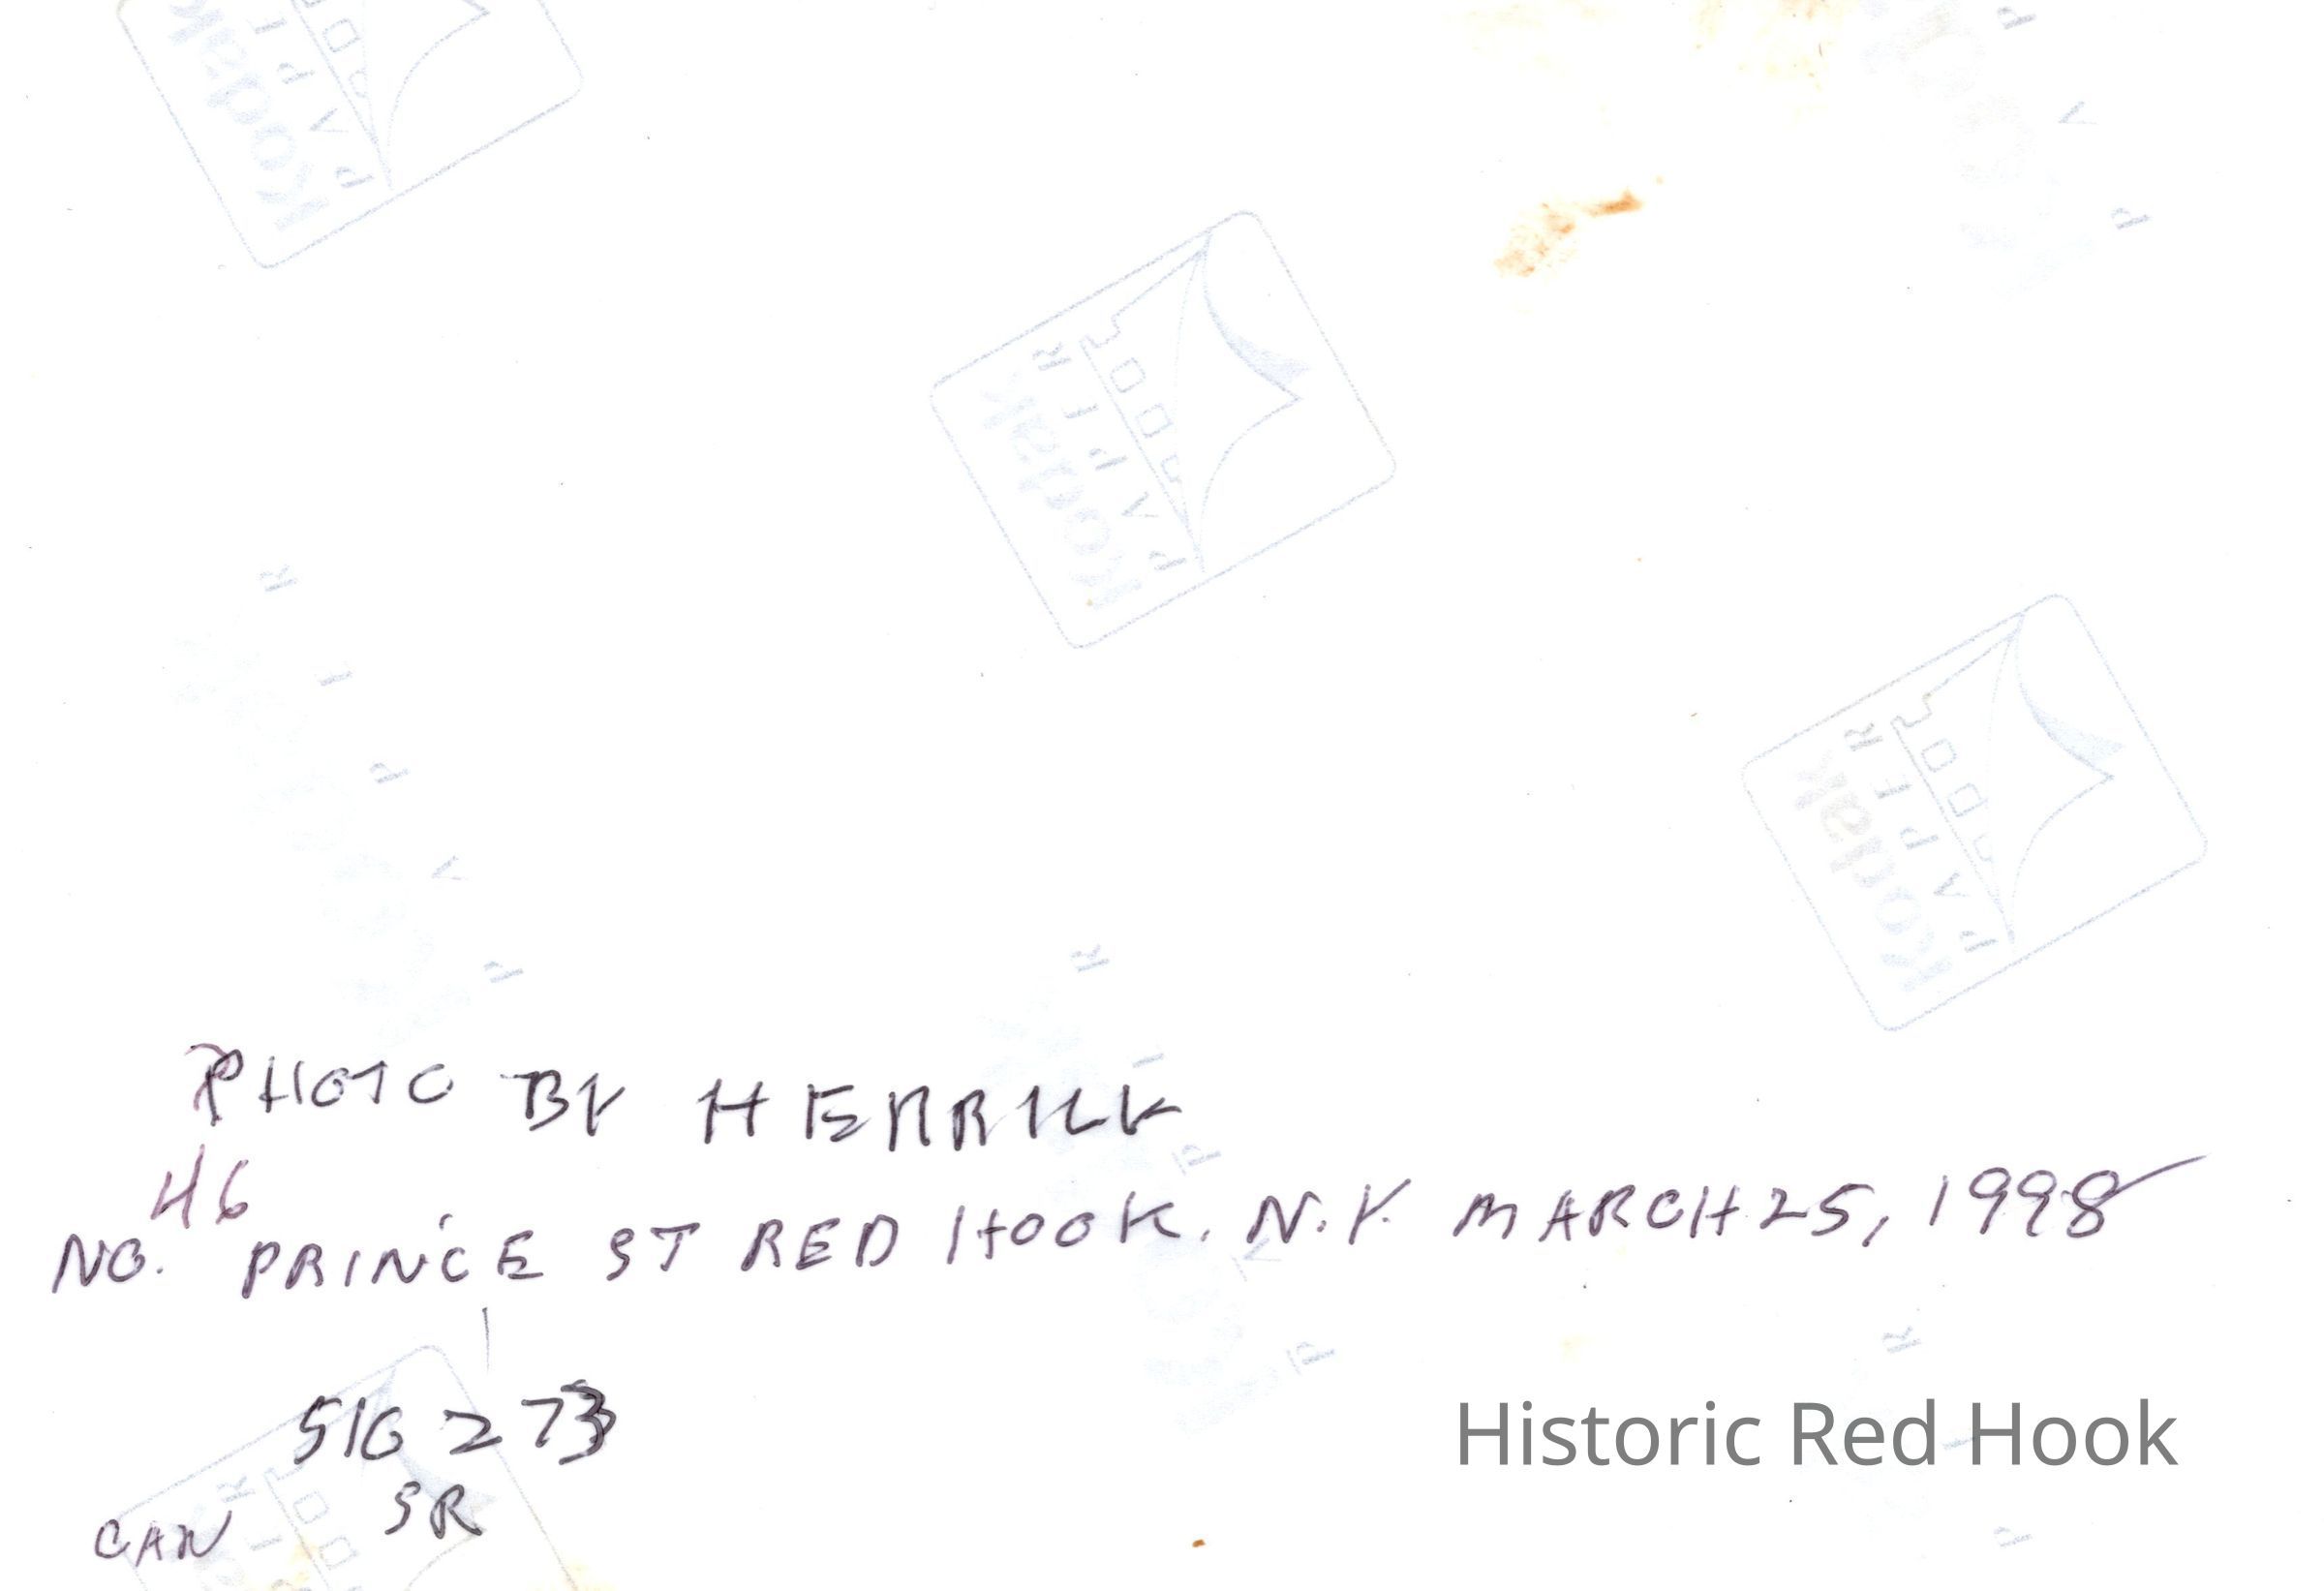 PHOTO BY HERRICK
46
NO. PRINCE ST RED HOOK, N.Y. MARCH 25, 1998
SIG 273
SR
CAN
Historic Red Hook
Kodak
PAPER
Kodak
PAPER
Kodak
PAPER